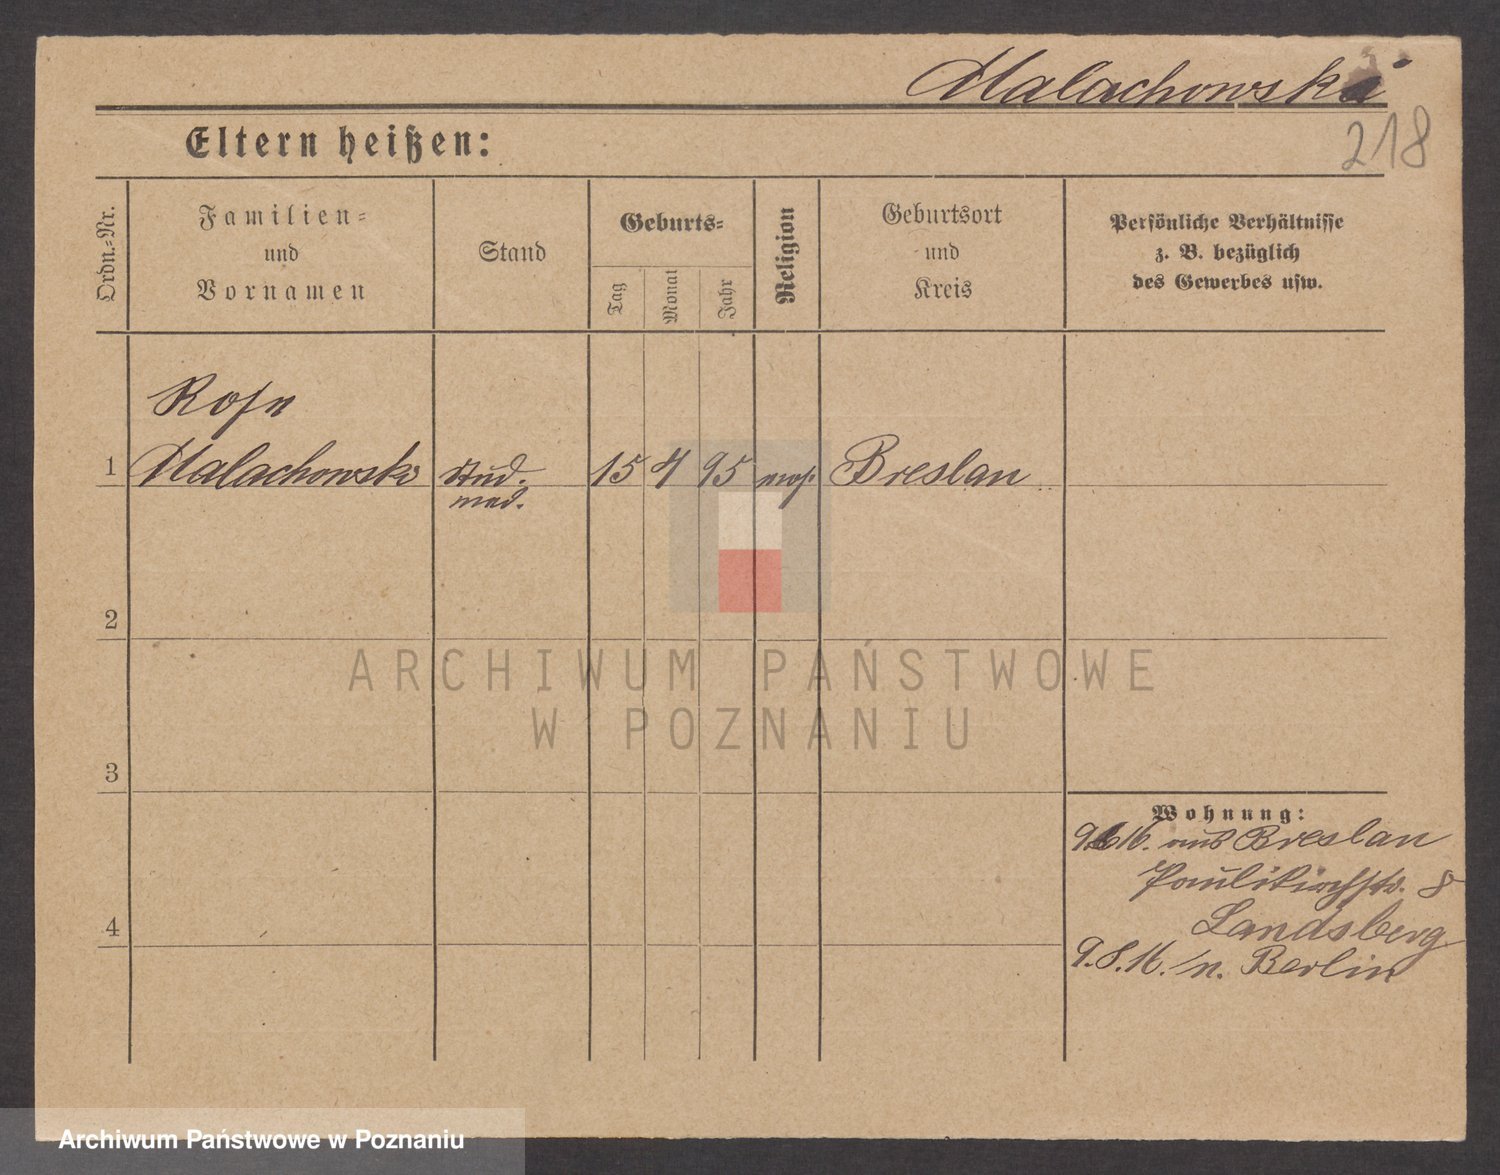 Malachowski
218
Eltern heißen:
Ordn.-Nr.
Familien- und Vornamen
Stand
Geburts-
Tag
Monat
Jahr
Religion
Geburtsort und Kreis
Persönliche Verhältnisse z. B. bezüglich des Gewerbes usw.
Rosa
1 Malachowski stud. 15 4 95 mos. Breslau
med.
2
3
4
Wohnung:
16. aus Breslau
Paulikirchstr. 8
Landsberg
9.8.16. n. Berlin
ARCHIWUM PAŃSTWOWE
W POZNANIU
Archiwum Państwowe w Poznaniu